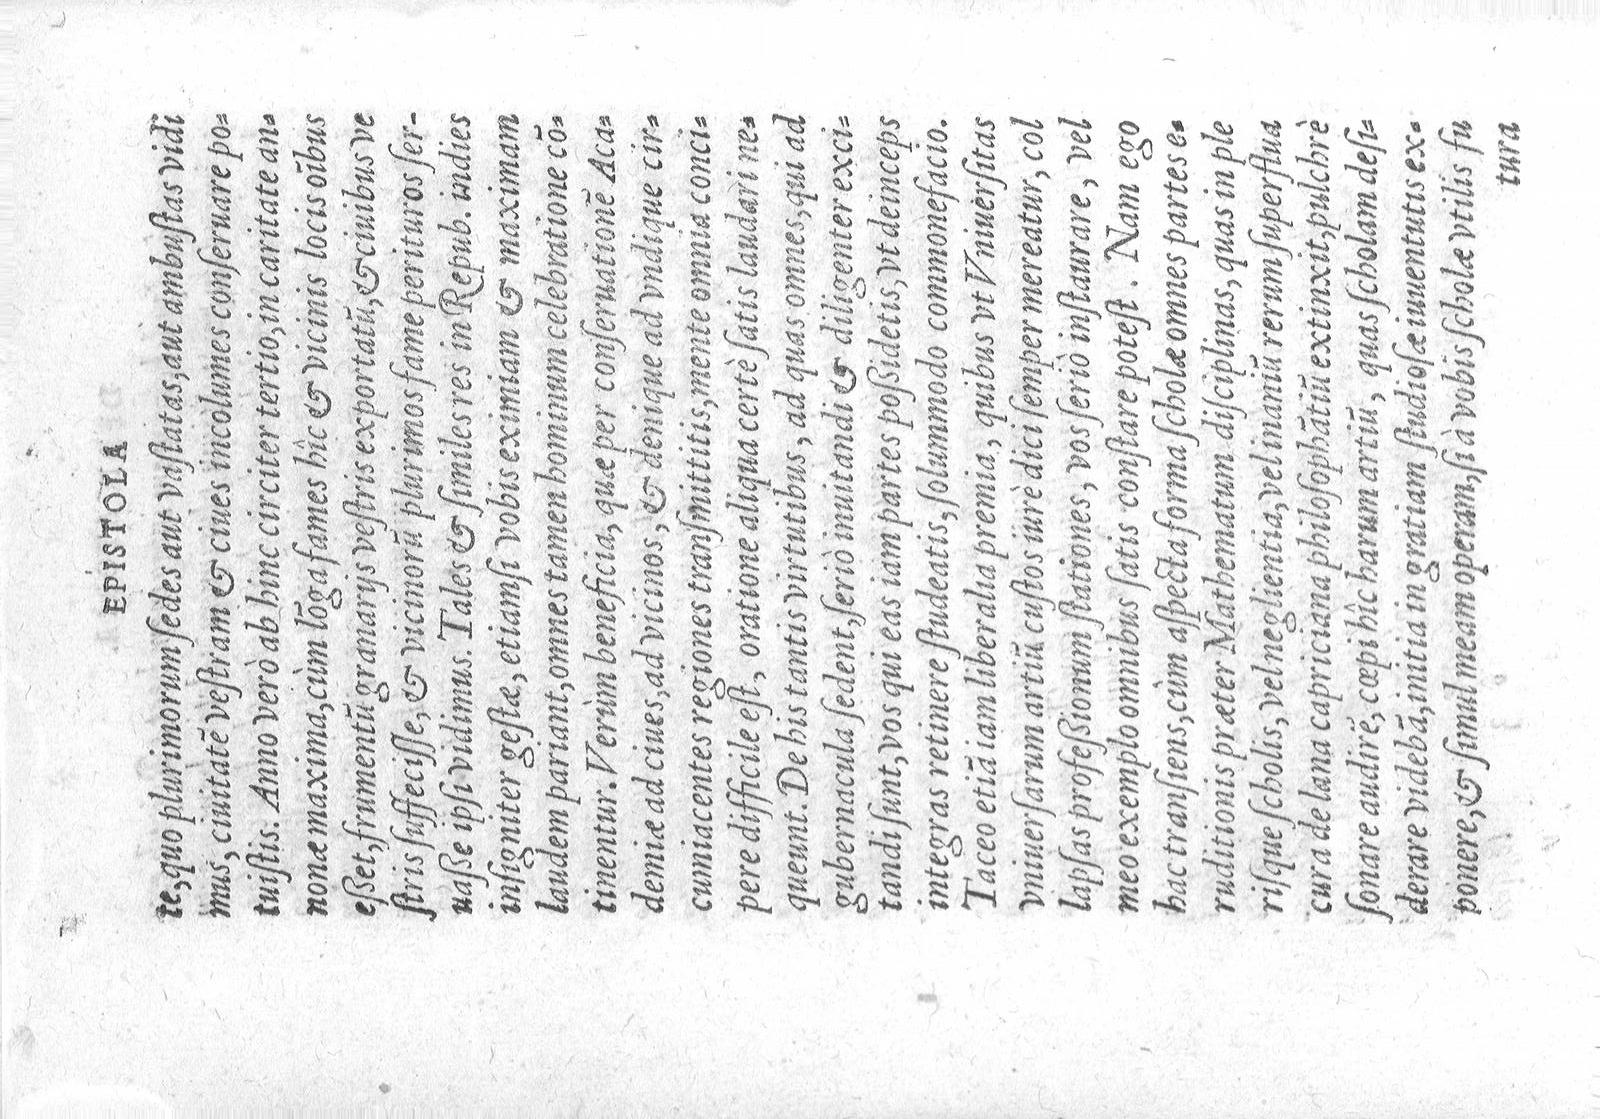 EPISTOLA
te, quo plurimorum ſedes aut vaſtatas, aut ambuſtas vidi
mus, ciuitatē veſtram & ciues incolumes conſeruare po=
tuiſtis. Anno verò ab hinc circiter tertio, in caritate an=
nonæ maxima, cùm lōga fames hîc & vicinis locis oībus
eſſet, frumentū granarijs veſtris exportatū, & ciuibus ve
ſtris ſuffeciſſe, & vicinorū plurimos fame perituros ſer-
uaſſe ipſi vidimus. Tales & ſimiles res in Repub. indies
inſigniter geſtæ, etiamſi vobis eximiam & maximam
laudem pariant, omnes tamen hominum celebratione cō=
tinentur. Verùm beneficia, quæ per conſeruationē Aca=
demiæ ad ciues, ad vicinos, & denique ad vndique cir=
cumiacentes regiones tranſmittitis, mente omnia conci=
pere difficile eſt, oratione aliqua certè ſatis laudari ne=
queunt. De his tantis virtutibus, ad quas omnes, qui ad
gubernacula ſedent, ſeriò imitandi & diligenter exci=
tandi ſunt, vos qui eas iam partes poſſidetis, vt deinceps
integras retinere ſtudeatis, ſolummodo commonefacio.
Taceo etiā iam liberalia premia, quibus vt Vniuerſitas
vniuerſarum artiū cuſtos iurè dici ſemper mereatur, col
lapſas profeſſionum ſtationes, vos ſeriò inſtaurare, vel
meo exemplo omnibus ſatis conſtare poteſt. Nam ego
hac tranſiens, cùm aſpecta forma ſcholæ omnes partes e=
ruditionis præter Mathematum diſciplinas, quas in ple
riſque ſcholis, vel neglientia, vel inaniū rerum ſuperflua
cura de lana capriciana philoſophātiū extinxit, pulchrè
ſonare audirē, cœpi hîc harum artiū, quas ſcholam deſi=
derare videbā, initia in gratiam ſtudioſæ iuuentutis ex=
ponere, & ſimul meam operam, ſi à vobis ſcholæ vtilis fu
tura